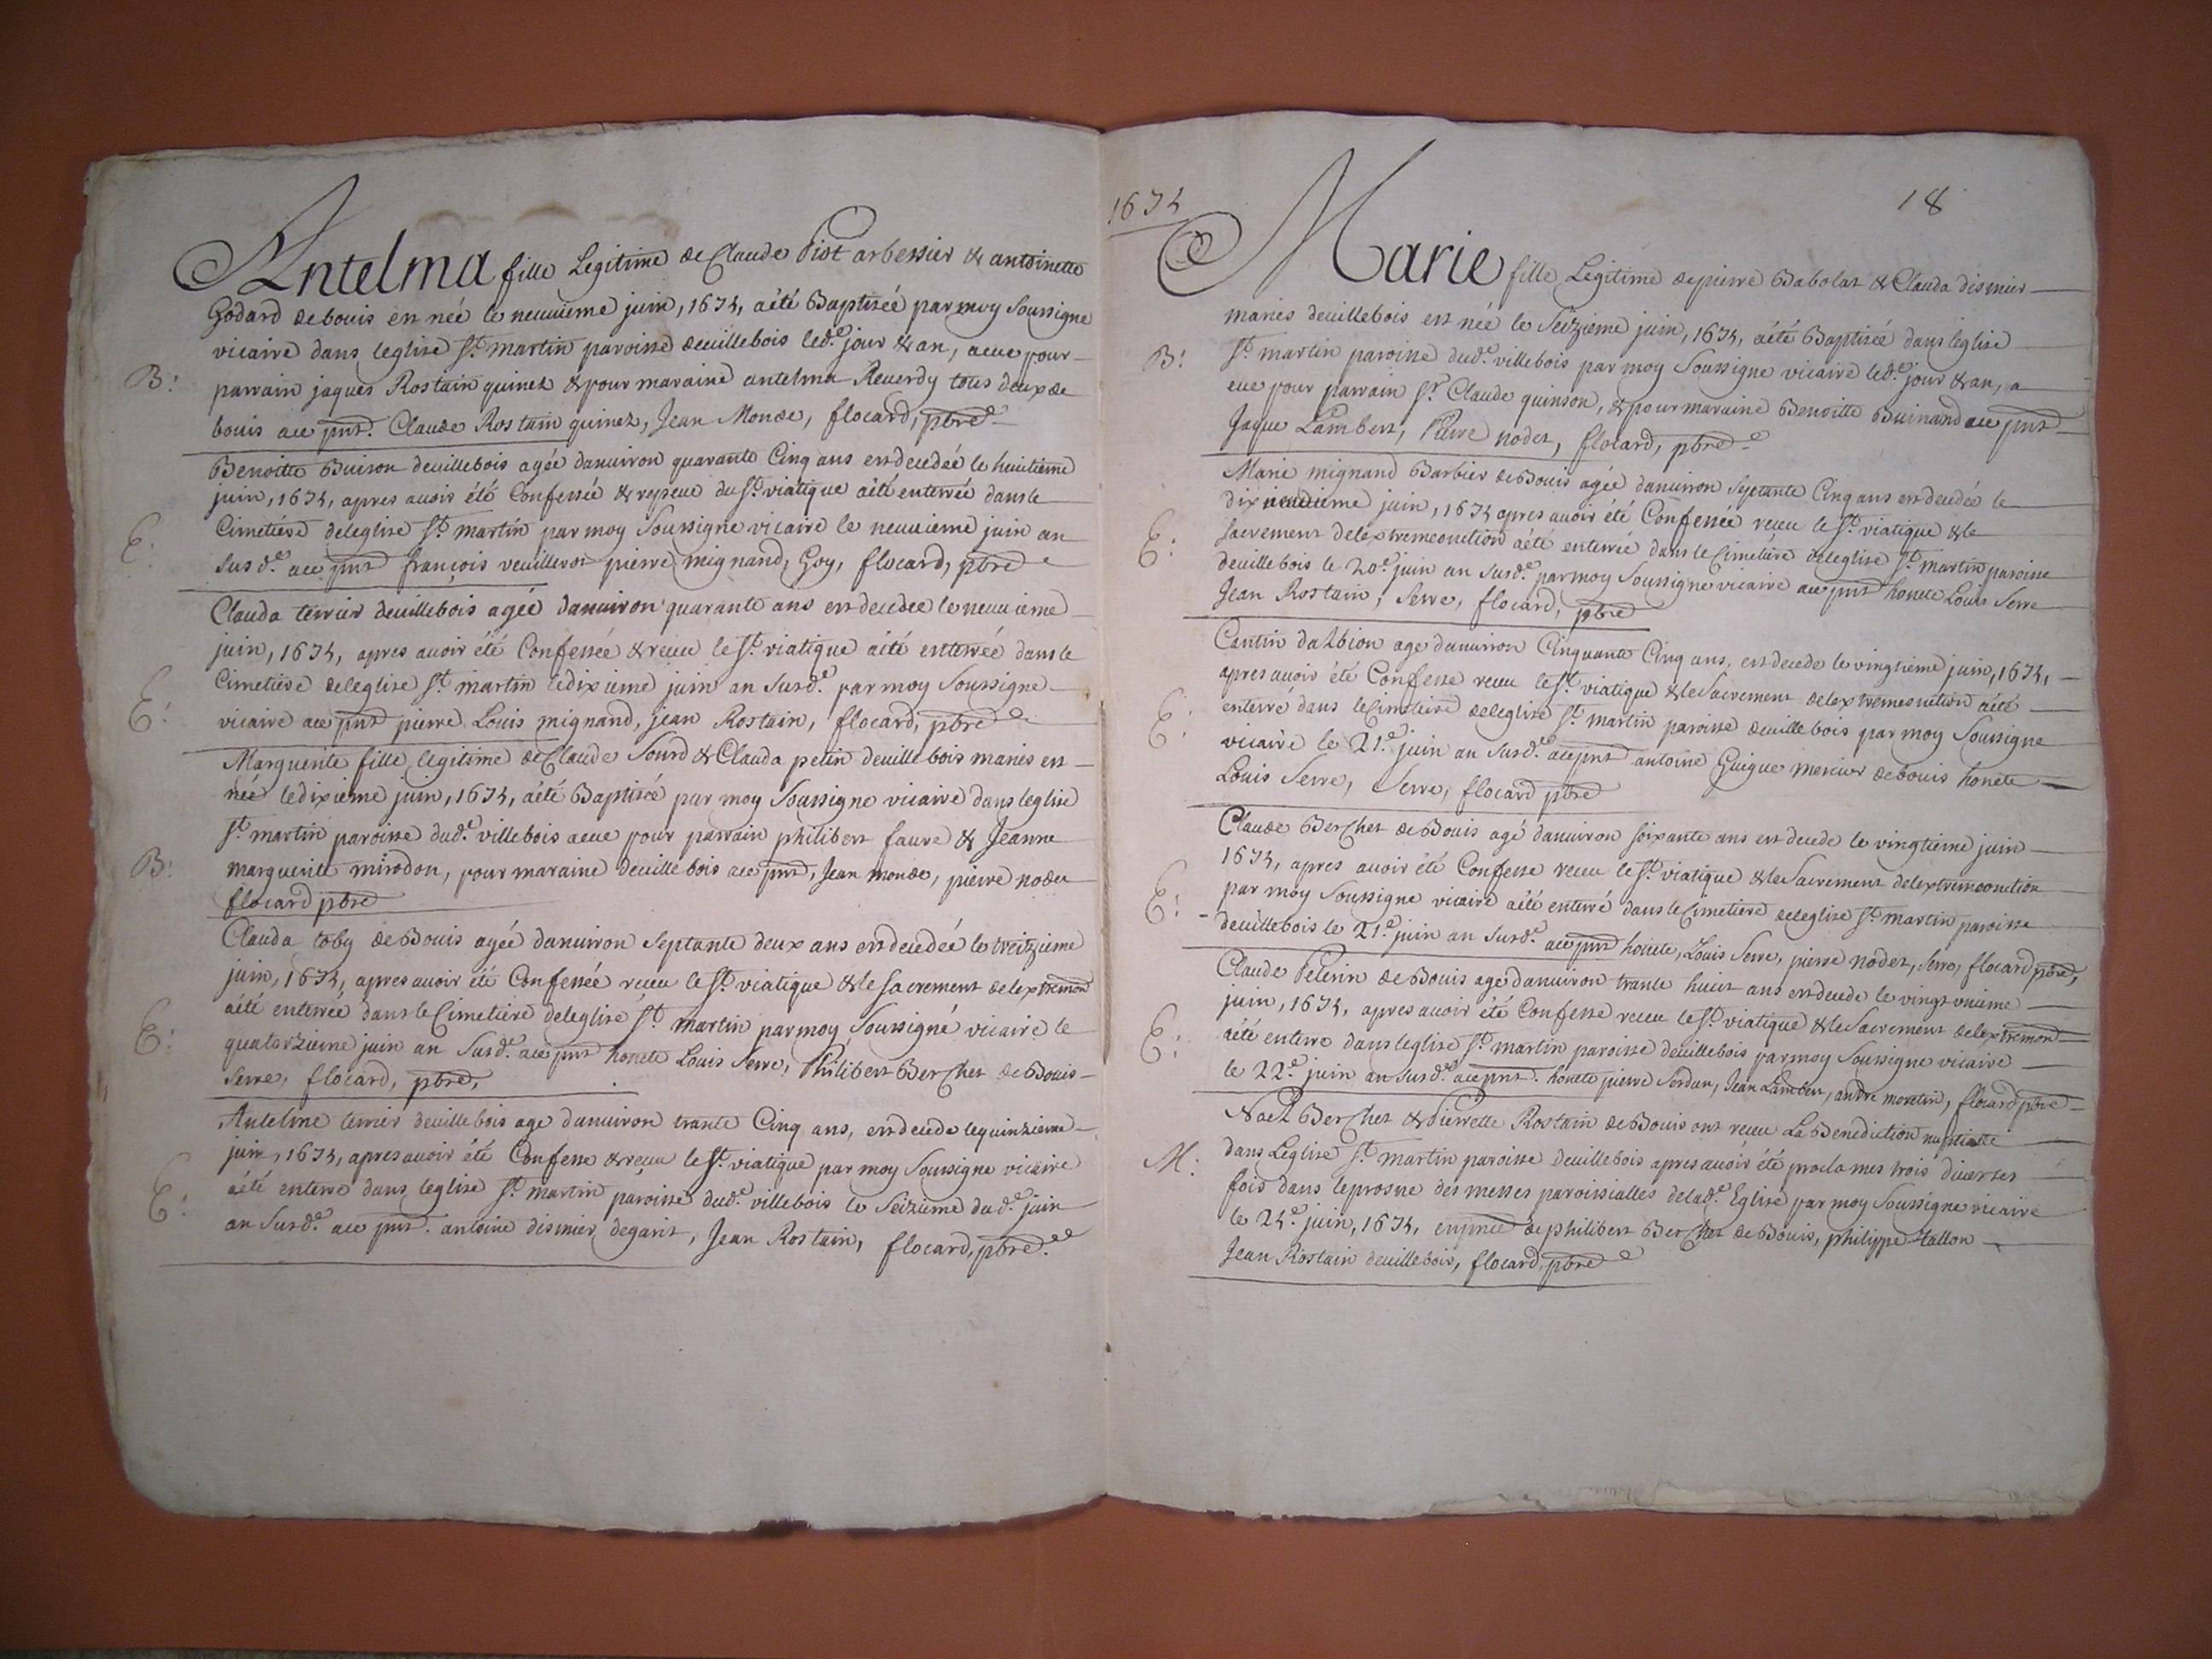 Antelma fille Legitime de Claude Pist arbessier & antoinette
Godard de bouis est née le neuuieme juin, 1674, a été Baptisée par moy Soussigne
vicaire dans leglise St. martin paroisse deuillebois led.e jour & an, a eue pour
B: parrain jaques Rostain quinet & pour maraine antelma Reuerdy tous deux de
bouis ace pnt. Claude Rostain quinet, Jean Monde, flocard, pbre
Benoitte Buison deuillebois agée danuiron quarante Cinq ans est decedée le huitieme
juin, 1674, apres auoir été Confessée & repeue du St. viatique a été enterrée dans le
E: Cimetiere deleglise St. martin par moy Soussigne vicaire le neuuieme juin an
susd.e ace pnt françois veuilleros pierre mignand, Goy, flocard, pbre
Clauda terrier deuillebois agée danuiron quarante ans est decedee le neuuieme
juin, 1674, apres auoir été Confessée & receu le St. viatique a été enterrée dans le
Cimetiere deleglise St. martin le dixieme juin an Susd.e par moy Soussigne
E: vicaire ace pnt pierre Louis mignand, jean Rostain, flocard, pbre
Marguerite fille legitime de Claude Sourd & Clauda petin deuillebois mariés est
née le dixieme juin, 1674, a été Baptisée par moy Soussigne vicaire dans leglise
St. martin paroisse dud.e villebois a eue pour parrain philibert faure & Jeanne
B: marguerite mirodon, pour maraine deuillebois ace pnt, Jean monde, pierre nodet
flocard pbre
Clauda toby de Bouis agée danuiron Septante deux ans est decedée le treitzieme
juin, 1674, apres auoir été Confessée receu le St. viatique & le sacrement delextremon
a été enterrée dans le Cimetiere deleglise St. martin par moy Soussigné vicaire le
E: quatorzieme juin an Susd.e ace pnt honete Louis Serre, Philibert Berchet de Bouis
Serre, flocard, pbre,
Antelme terrier deuillebois age danuiron trante Cinq ans, est decede le quinzieme
juin, 1674, apres auoir été Confesse & reçeu le St. viatique par moy Soussigne vicaire
E: a été enterre dans leglise St. martin paroisse dud.e villebois le Seizieme dud.e juin
an Susd.e ace pnt. antoine dismier degarit, Jean Rostain, flocard, pbre
1674
18
Marie fille Legitime de pierre Babolat & Clauda dismier
mariés deuillebois est née le Seizieme juin, 1674, a été Baptisée dans leglise
B: St. martin paroisse dud.e villebois par moy Soussigne vicaire led.e jour & an, a
eue pour parrain Sr. Claude quinson, & pour maraine Benoitte Buinand ace pnt
Jaque Lambert, Pierre nodet, flocard, pbre
Marie mignand Barbier de Bouis agée danuiron Septante Cinq ans est decedée le
dix neuuieme juin, 1674 apres auoir été Confessée receu le St. viatique & le
E: sacrement delextremeonction a été enterrée dans le Cimetiere deleglise St. martin paroisse
deuillebois le 20.e juin an Susd.e par moy Soussigne vicaire ace pnt honete Louis Serre
Jean Rostain, Serre, flocard, pbre
Cantin dalbion age danuiron Cinquante Cinq ans, est decede le vingtieme juin, 1674,
apres auoir été Confesse receu le St. viatique & le Sacrement delextremeonction a été
E: enterré dans le Cimetiere deleglise St. martin paroisse deuillebois par moy Soussigne
vicaire le 21.e juin an Susd.e ace pnt antoine Guigue mercier de bouis honete
Louis Serre, Serre, flocard pbre
Claude Berchet de Bouis agé danuiron soixante ans est decede le vingtieme juin
1674, apres auoir été Confesse receu le St. viatique & le Sacrement delextremeonction
E: par moy Soussigne vicaire a été enterré dans le Cimetiere deleglise St. martin paroisse
deuillebois le 21.e juin an Susd.e ace pnt honete, Louis Serre, pierre nodet, Serre, flocard pbre,
Claude Pelerin de Bouis age danuiron trante huict ans est decede le vingt unieme
juin, 1674, apres auoir été Confesse receu le St. viatique & le Sacrement delextremon
E: a été enterre dans leglise St. martin paroisse deuillebois par moy Soussigne vicaire
le 22.e juin an Susd.e ace pnt. honete pierre Serdan, Jean Lambert, andre moretin, flocard pbre
Noel Berchet & Pierrette Rostain de Bouis ont receu La Benediction nuptialle
M: dans Léglise St. martin paroisse deuillebois apres auoir été proclames trois diuerses
fois dans le prosne des messes paroissialles delad.e Eglise par moy Soussigne vicaire
le 24.e juin, 1674, en pnce de philibert Berchet de Bouis, philippe tallon
Jean Rostain deuillebois, flocard, pbre